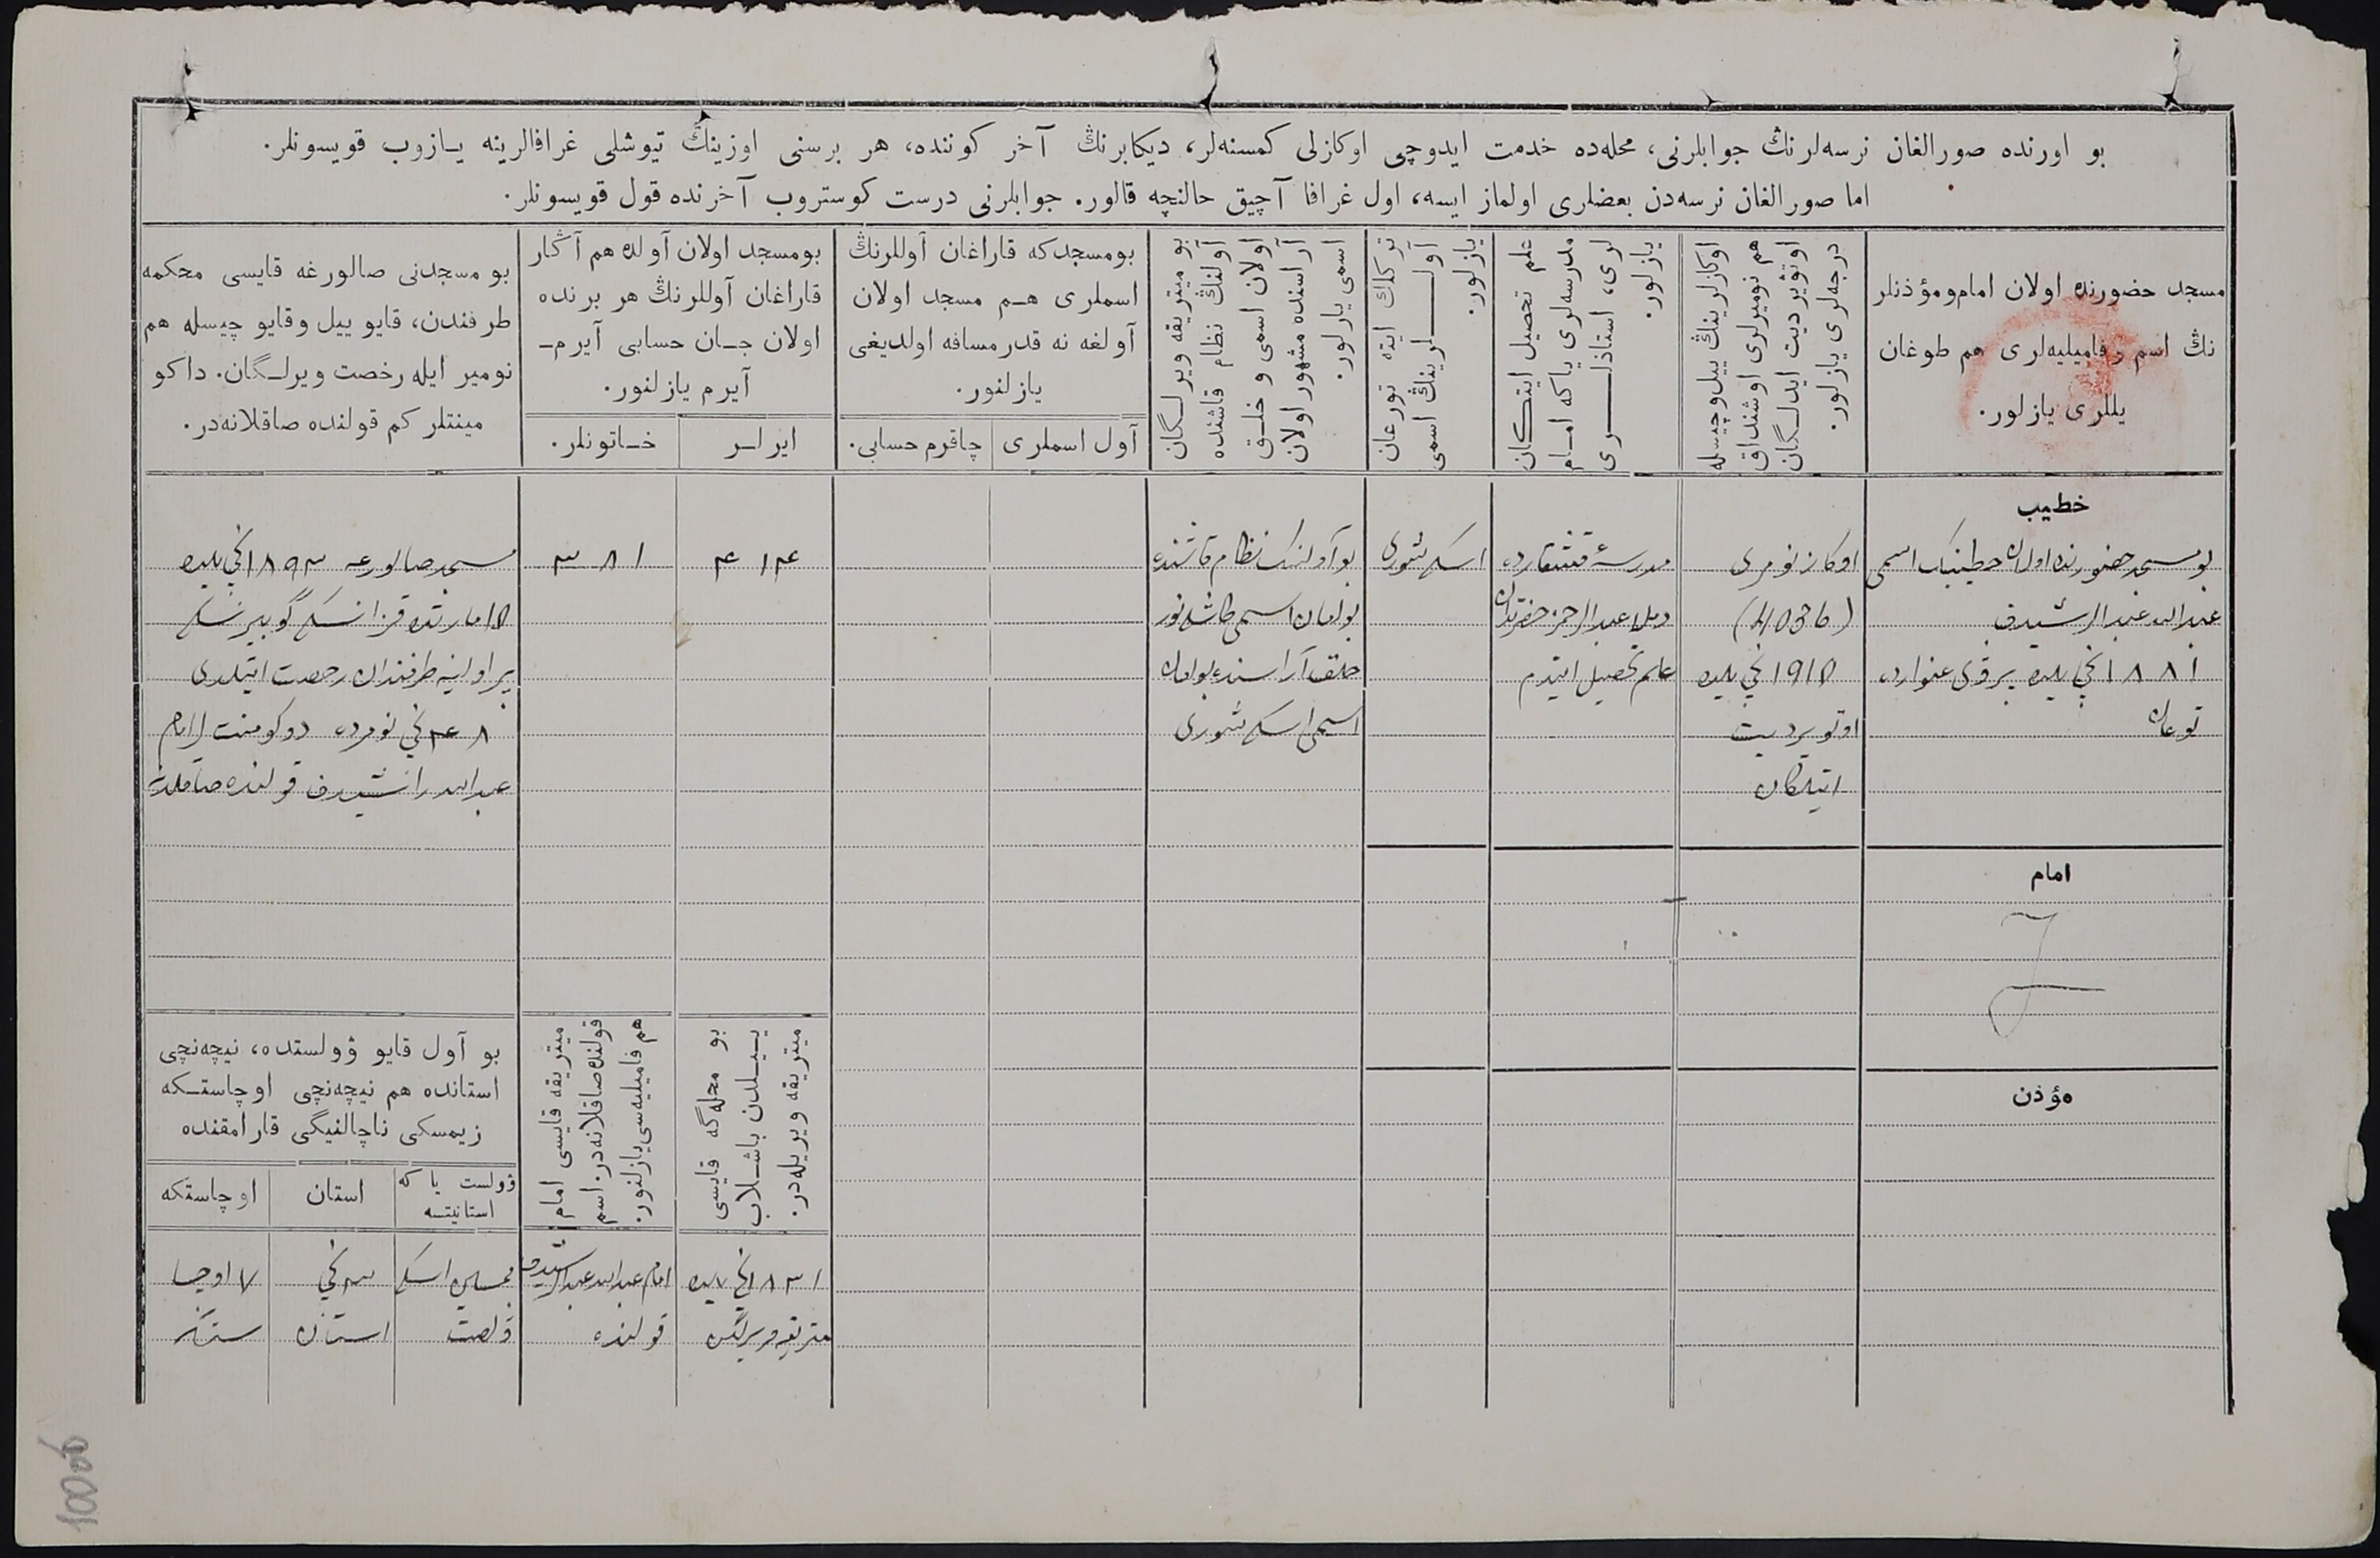 بو اورنده صورالغان نرسه‌لرنڭ جوابلرنی، محله‌ده خدمت ایدوچی اوکازلی کمسنه‌لر، دیکابرنڭ آخر کوننده، هر برسنی اوزینڭ تیوشلی غرافالرینه یازوب قویسونلر.
اما صورالغان نرسه‌دن بعضلری اولماز ایسه، اول غرافا آچیق حالنچه قالور. جوابلرنی درست کوستروب آخرنده قول قویسونلر.
مسجد حضورنده اولان امام ومؤذنلر
نڭ اسم وفامیلیه‌لری هم طوغان
یللری یازلور.
اوکازلرینڭ ییل وچیسله
هم نومیرلری اوشنداق
اوتوێردیت ایدلگان
درجه‌لری یازلور.
علم تحصیل ایتكان
مدرسه‌لری یاکه امام
لری، استاذلری
یازلور.
ترکلك ایته تورغان
آوللرینڭ اسمی
یازلور.
بو میتریقه ویرلگان
آولنڭ نظام قاشنده
اولان اسمی و خلق
آراسنده مشهور اولان
اسمی یازلور.
بومسجدکه قاراغان آوللرنڭ
اسملری هم مسجد اولان
آولغه نه قدر مسافه اولدیغی
یازلنور.
آول اسملری
چاقرم حسابی.
بومسجد اولان آولده هم آڭار
قاراغان آوللرنڭ هر برنده
اولان جان حسابی آیرم-
آیرم یازلنور.
ایرلر
خاتونلر.
بو مسجدنی صالورغه قایسی محکمه
طرفندن، قایو ییل وقایو چیسله هم
نومیر ایله رخصت ویرلگان. داکو
مینتلر کم قولنده صاقلانه‌در.
خطیب
بو مسجد حضورنده اولان خطیبنك اسمی
عبدالله عبدالرشیدف
۱۸۸۱ نچی یلده برنچی غنوارده
توغان
اوکاز نومری
(4036)
1915 نچی یلده
اوتویردیت
ایتلكان
مدرسۀ قشقارده
دملا عبدالرحمن حضرتدن
علم تحصیل ایتدم
اسکی
بو آولنك نظام قاشنده
بولغان اسمی طاشلنور
خلق آراسنده بولغان
اسمی اسکی
۴۱۴
۳۸۱
مسجد صالورغه ۱۸۹۳ نچی یلده
15 مارتده قزانسكی گوبیرنسكی
پراولنیه طرفندان رخصت ایتلدی
۴۸ نچی نومرده دوكومنت امام
عبدالله راشیدوف قولنده صاقلانه
امام
مؤذن
بو محله‌گه قایسی
ییلدن باشلاب
میتریقه ویریله‌در.
میتریقه قایسی امام
قولنده صاقلانه‌در. اسم
هم فامیلیه‌سی یازلنور.
بو آول قایو ۋولستده، نیچه‌نچی
استانده هم نیچه‌نچی اوچاستکه
زیمسکی ناچالنیگی قارامقنده
ۋولست یا که
استانیتسه
استان
اوچاستکه
۱۸۳۱ نچی یلده
متریقه ویرلگن
امام عبدالله عبدالرشیدف
قولنده
اسکی
ولصت
۳ نچی
استان
۷ اوچا
ستكه
100об